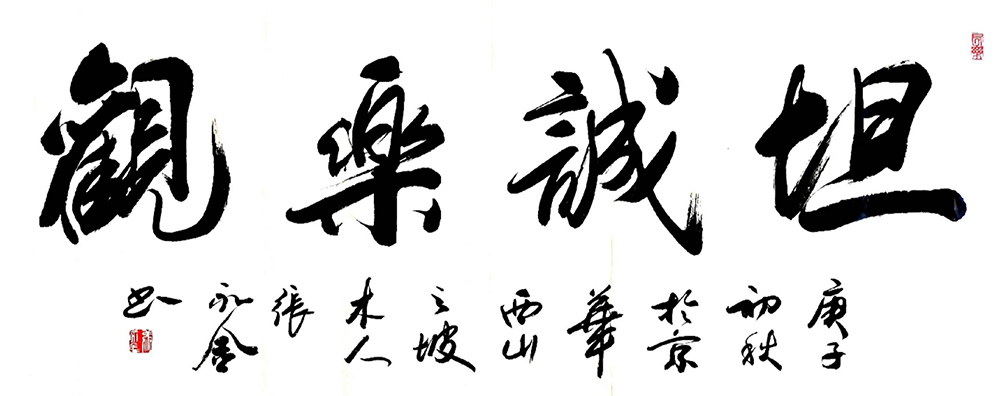 坦誠樂觀
庚子初秋於京華西山之坡木人張永書